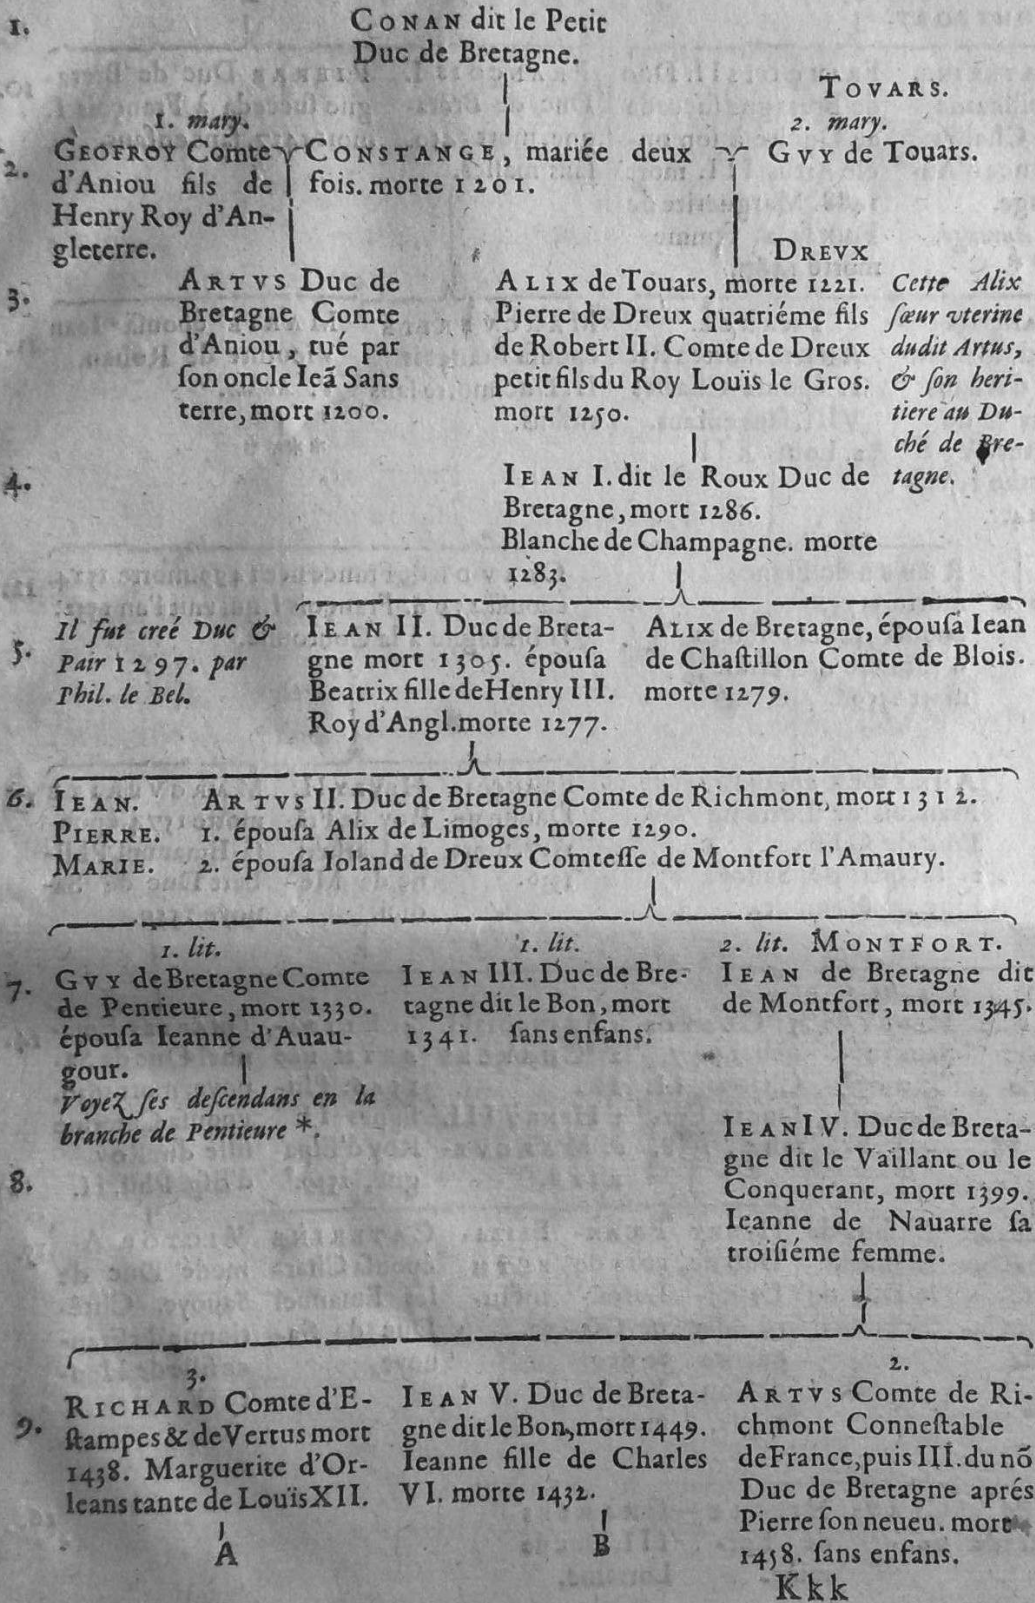 1.
CONAN dit le Petit
Duc de Bretagne.
TOVARS.
1. mary.
2. mary.
2.
GEOFROY Comte
d'Aniou fils de
Henry Roy d'An-
gleterre.
CONSTANGE, mariée deux
fois. morte 1201.
GVY de Touars.
3.
ARTVS Duc de
Bretagne Comte
d'Aniou, tué par
ſon oncle Ieã Sans
terre, mort 1200.
DREVX
ALIX de Touars, morte 1221.
Pierre de Dreux quatriéme fils
de Robert II. Comte de Dreux
petit fils du Roy Louïs le Gros.
mort 1250.
Cette Alix
ſœur vterine
dudit Artus,
& ſon heri-
tiere au Du-
ché de Bre-
tagne.
4.
IEAN I. dit le Roux Duc de
Bretagne, mort 1286.
Blanche de Champagne. morte
1283.
5.
Il fut creé Duc &
Pair 1297. par
Phil. le Bel.
IEAN II. Duc de Breta-
gne mort 1305. épouſa
Beatrix fille de Henry III.
Roy d'Angl. morte 1277.
ALIX de Bretagne, épouſa Iean
de Chaſtillon Comte de Blois.
morte 1279.
6.
IEAN.
PIERRE.
MARIE.
ARTVS II. Duc de Bretagne Comte de Richmont, mort 1312.
1. épouſa Alix de Limoges, morte 1290.
2. épouſa Ioland de Dreux Comteſſe de Montfort l'Amaury.
7.
1. lit.
GVY de Bretagne Comte
de Pentieure, mort 1330.
épouſa Ieanne d'Auau-
gour.
Voyez ſes deſcendans en la
branche de Pentieure *.
1. lit.
IEAN III. Duc de Bre-
tagne dit le Bon, mort
1341. ſans enfans.
2. lit. MONTFORT.
IEAN de Bretagne dit
de Montfort, mort 1345.
8.
IEAN IV. Duc de Breta-
gne dit le Vaillant ou le
Conquerant, mort 1399.
Ieanne de Nauarre ſa
troiſiéme femme.
9.
3.
RICHARD Comte d'E-
ſtampes & de Vertus mort
1438. Marguerite d'Or-
leans tante de Louïs XII.
A
IEAN V. Duc de Breta-
gne dit le Bon, mort 1449.
Ieanne fille de Charles
VI. morte 1432.
B
2.
ARTVS Comte de Ri-
chmont Conneſtable
de France, puis III. du nõ
Duc de Bretagne aprés
Pierre ſon neueu. mort
1458. ſans enfans.
Kkk